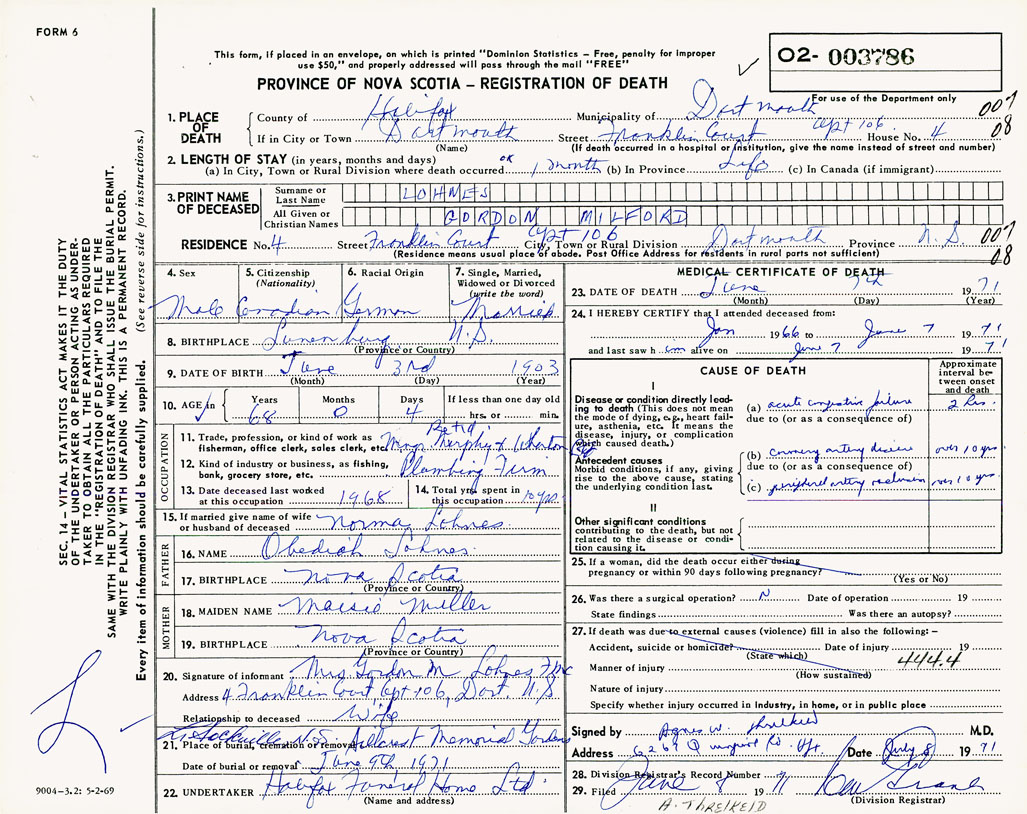 FORM 6
This form, if placed in an envelope, on which is printed "Dominion Statistics – Free, penalty for improper
use $50," and properly addressed will pass through the mail "FREE"
O2- 003786
PROVINCE OF NOVA SCOTIA – REGISTRATION OF DEATH
For use of the Department only
1. PLACE OF DEATH
County of Halifax Municipality of Dartmouth 007
If in City or Town Dartmouth Street Franklin Court Apt 106 House No. 4 08
(Name) (If death occurred in a hospital or institution, give the name instead of street and number)
2. LENGTH OF STAY (in years, months and days)
(a) In City, Town or Rural Division where death occurred OK 1 month (b) In Province Life (c) In Canada (if immigrant)
3. PRINT NAME OF DECEASED
Surname or Last Name LOHNES
All Given or Christian Names GORDON MILFORD
RESIDENCE No. 4 Street Franklin Court Apt 106 City, Town or Rural Division Dartmouth Province N.S. 007
(Residence means usual place of abode. Post Office Address for residents in rural parts not sufficient) 08
4. Sex Male
5. Citizenship (Nationality) Canadian
6. Racial Origin German
7. Single, Married, Widowed or Divorced (write the word) Married
8. BIRTHPLACE Lunenburg N.S.
(Province or Country)
9. DATE OF BIRTH June 3rd 1903
(Month) (Day) (Year)
10. AGE in Years 68 Months 0 Days 4 If less than one day old hrs. or min.
OCCUPATION
11. Trade, profession, or kind of work as fisherman, office clerk, sales clerk, etc. Ret'd. Mngr. Murphy & Wharton
12. Kind of industry or business, as fishing, bank, grocery store, etc. Plumbing Firm
13. Date deceased last worked at this occupation 1968
14. Total yrs. spent in this occupation 10 yrs
15. If married give name of wife or husband of deceased Norma Lohnes
FATHER
16. NAME Obediah Lohnes
17. BIRTHPLACE Nova Scotia
(Province or Country)
MOTHER
18. MAIDEN NAME Maisie Miller
19. BIRTHPLACE Nova Scotia
(Province or Country)
20. Signature of informant Mrs Gordon M. Lohnes
Address 4 Franklin Court, Apt 106, Dart. N.S
Relationship to deceased Wife
Sackville N.S.
21. Place of burial, cremation or removal Hillcrest Memorial Gardens
Date of burial or removal June 9th 1971
22. UNDERTAKER Halifax Funeral Home Ltd.
(Name and address)
MEDICAL CERTIFICATE OF DEATH
23. DATE OF DEATH June 7th 1971
(Month) (Day) (Year)
24. I HEREBY CERTIFY that I attended deceased from:
Jan 1966 to June 7 1971
and last saw him alive on June 7 1971
CAUSE OF DEATH
Approximate interval between onset and death
I
Disease or condition directly leading to death (This does not mean the mode of dying, e.g., heart failure, asthenia, etc. It means the disease, injury, or complication which caused death.)
(a) acute congestive failure 2 hrs.
due to (or as a consequence of)
Antecedent causes
Morbid conditions, if any, giving rise to the above cause, stating the underlying condition last.
(b) coronary artery disease over 10 yrs
due to (or as a consequence of)
(c) peripheral artery over 10 yrs
II
Other significant conditions
contributing to the death, but not related to the disease or condition causing it.
25. If a woman, did the death occur either during pregnancy or within 90 days following pregnancy?
(Yes or No)
26. Was there a surgical operation? N Date of operation 19
State findings Was there an autopsy?
27. If death was due to external causes (violence) fill in also the following: –
Accident, suicide or homicide? Date of injury 19
(State which)
Manner of injury 444.4
(How sustained)
Nature of injury
Specify whether injury occurred in industry, in home, or in public place
Signed by Agnes W. Threlkeld M.D.
Address 6269 Hfx. Date July 8 1971
28. Division Registrar's Record Number
29. Filed June 8 1971
(Division Registrar)
A. THRELKELD
SEC. 14 – VITAL STATISTICS ACT MAKES IT THE DUTY
OF THE UNDERTAKER OR PERSON ACTING AS UNDER-
TAKER TO OBTAIN ALL THE PARTICULARS REQUIRED
IN THE "REGISTRATION OF DEATH" AND TO FILE THE
SAME WITH THE DIVISION REGISTRAR WHO SHALL ISSUE THE BURIAL PERMIT.
WRITE PLAINLY WITH UNFADING INK. THIS IS A PERMANENT RECORD.
Every item of information should be carefully supplied. (See reverse side for instructions.)
9004-3.2: 5-2-69